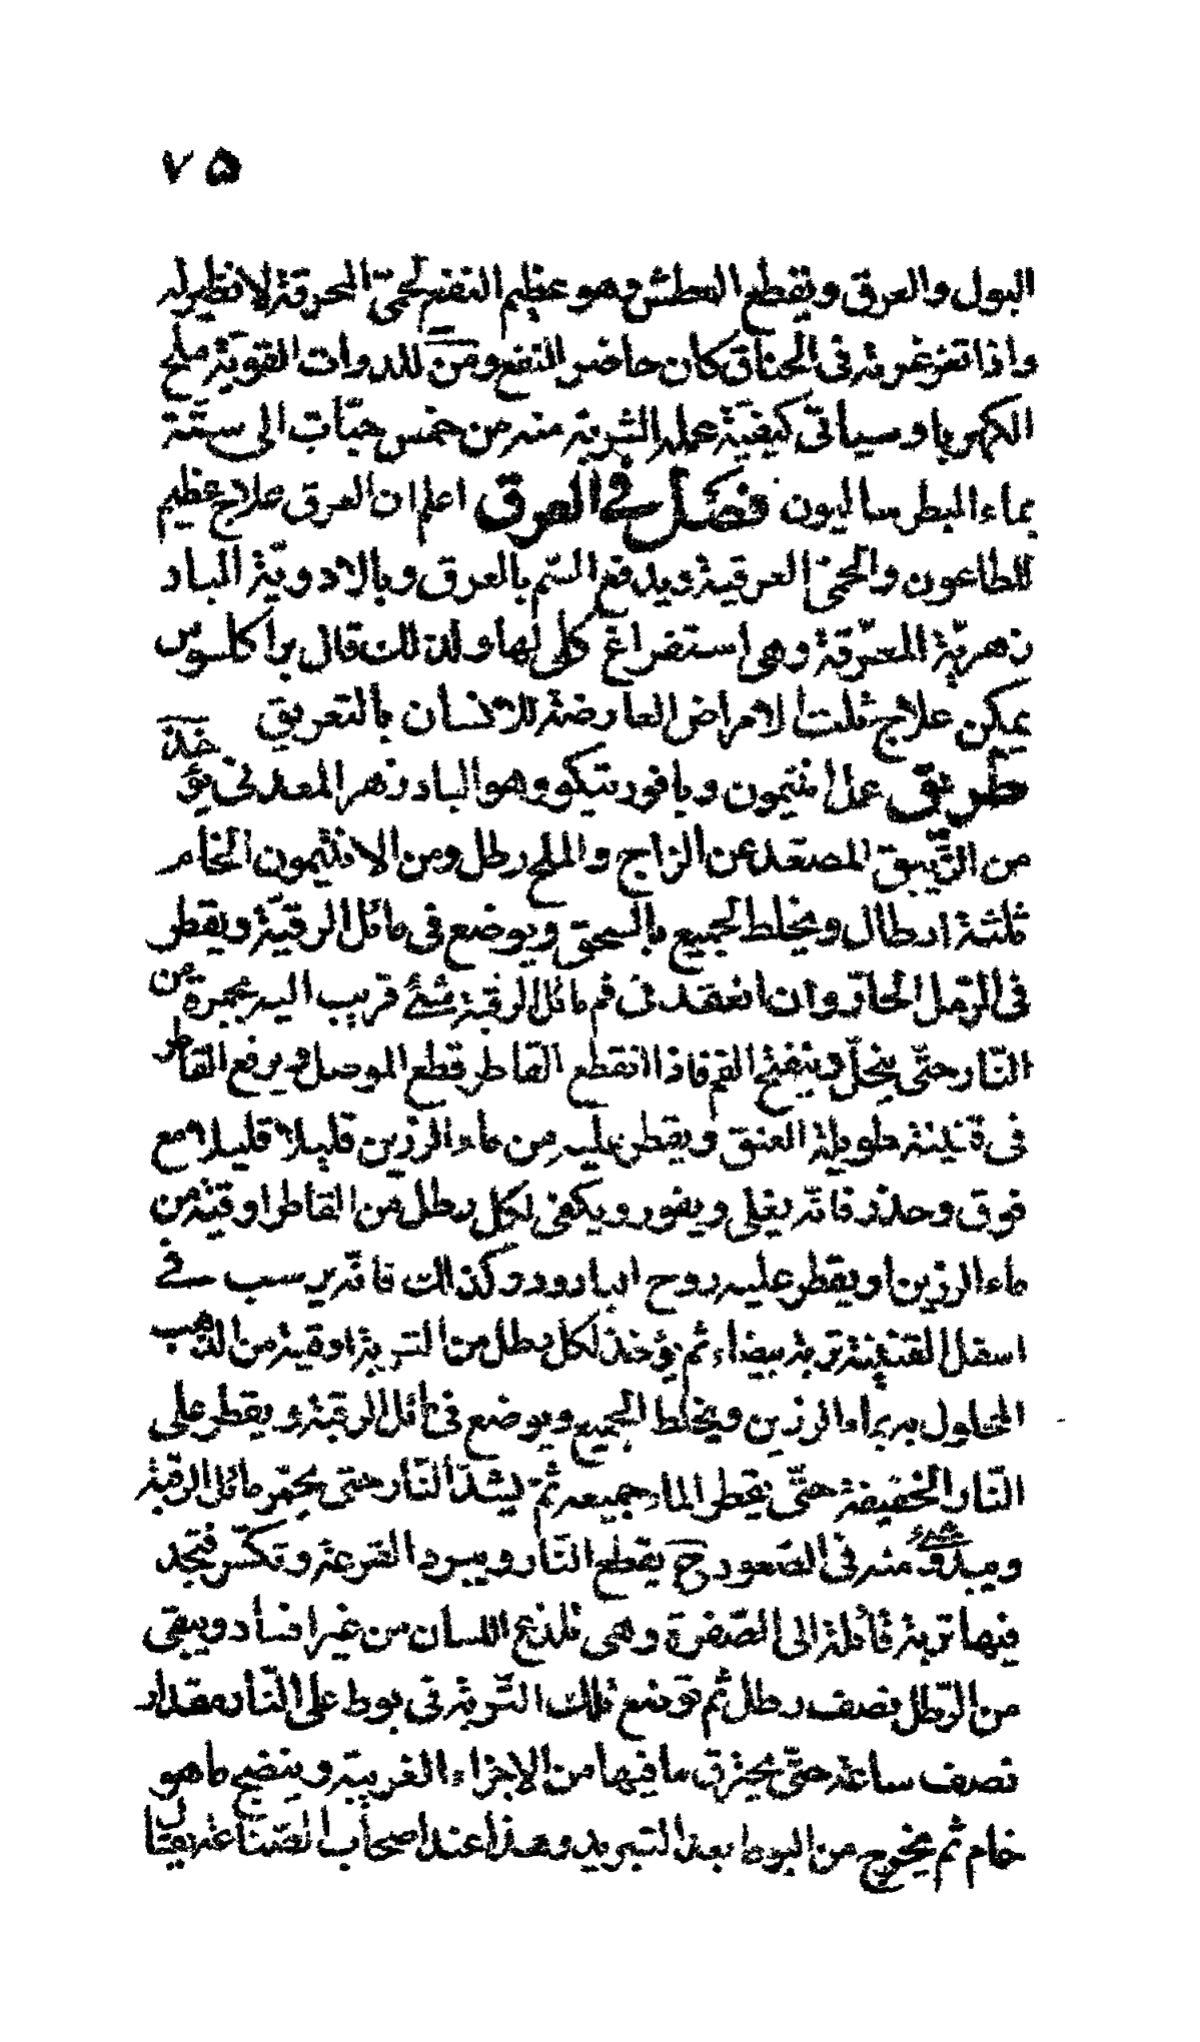 ٧٥
البول والعرق ويقطع العطش وهو عظيم النفع لحمّى المحرقة لا نظير له
واذا تغرغر به فى الخناق كان حاضر النفع ومن للدوات القوية ملح
الكهربا وسياتى كيفيّة عمله الشربة منه من خمس حبّات الى ستّة
بماء البطرساليون فصل فى العرق اعلم ان العرق علاج عظيم
للطاعون والحمى العرقية ويدفع السّم بالعرق وبالادويّة الباد
زهريّة المعرّقة وهى استفراغ كلى لها ولذلك قال براكلسوس
يمكن علاج ثلث الامراض العارضة للانسان بالتعريق
طريق عمل انتيمون ديافورتيكو وهو البادزهر المعدنى يؤخذ
من الزّيبق المصعّد عن الزاج والملح رطل ومن الانتيمون الخام
ثلثة ارطال ويخلط الجميع بالسحق ويوضع فى مائل الرقبّة ويقطر
فى الرّمل الحارّ وان انعقد فى فم مائل الرقبة شئ قريب اليه بجمرة من
النّار حتّى ينحلّ وينفتح الفم فاذا انقطع القاطر قطع الموصل ويرفع القاطر
فى قنينة طويلة العنق ويقطر عليه من ماء الرزين قليلا قليلا مع
فوق وحذر فانّه يغلى ويفور ويكفى لكل رطل من القاطر اوقية من
ماء الرزين او يقطر عليه روح البارود وكذالك فانّه يرسب فى
اسفل القنينة تربة بيضاء ثم يؤخذ لكل رطل من التربة اوقية من الذهب
المحلول به بماء الرزين ويخلط الجميع ويوضع فى مائل الرقبة ويقطر على
النّار الخفيفة حتّى يقطر الماء جميعه ثمّ يشدّ النّار حتى يحمّر مائل الرقبة
ويبدؤ شئ منه فى الصّعود ح يقطع النّار ويبرد القرعة وتكسّر فتجد
فيها تربة قائلة الى الصّفرة وهى تلذع اللسان من غير افساد ويبقى
من الرّطل نصف رطل ثم توضع تلك التّربة فى بوط على النّار مقدار
نصف ساعة حتّى يحترق ما فيها من الاجزاء الغريبة وينضج ما هو
خام ثم يخرج من البوط بعد التبريد وهذا عند اصحاب الصّناعة يقال